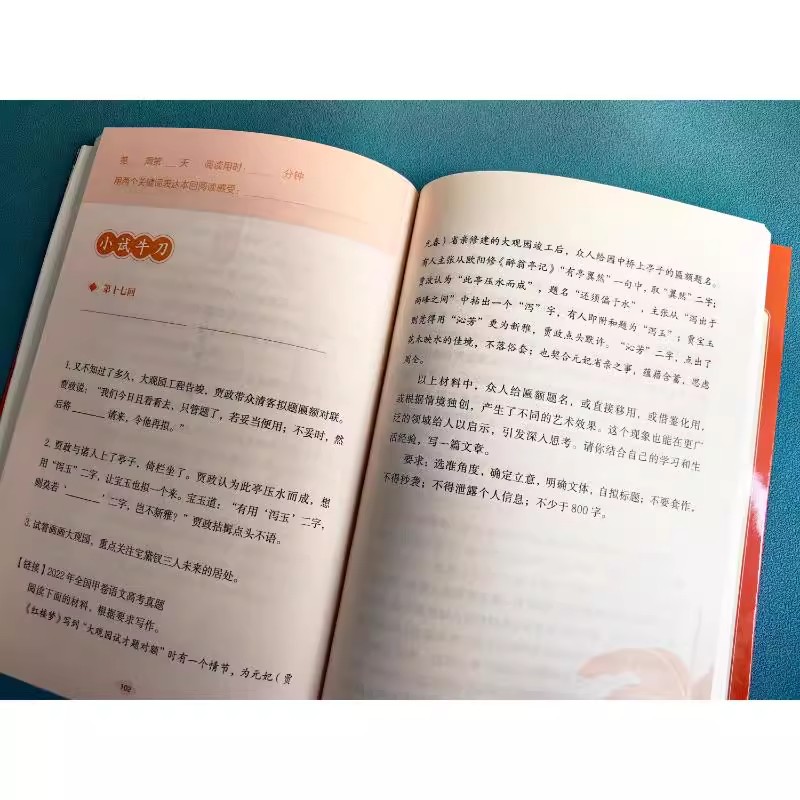 第 周第 天 阅读用时： 分钟
用两个关键词表达本回阅读感受：
小试牛刀
◆ 第十七回
1. 又不知过了多久，大观园工程告竣，贾政带众清客拟题匾额对联。
贾政说：“我们今日且看看去，只管题了，若妥当便用；不妥时，然
后将______请来，令他再拟。”
2. 贾政与诸人上了亭子，倚栏坐了。贾政认为此亭压水而成，想
用“泻玉”二字，让宝玉也拟一个来。宝玉道：“有用‘泻玉’二字，
则莫若‘______’二字，岂不新雅？”贾政拈髯点头不语。
3. 试着画画大观园，重点关注宝黛钗三人未来的居处。
【链接】2022年全国甲卷语文高考真题
阅读下面的材料，根据要求写作。
《红楼梦》写到“大观园试才题对额”时有一个情节，为元妃（贾
102
元春）省亲修建的大观园竣工后，众人给园中桥上亭子的匾额题名。
有人主张从欧阳修《醉翁亭记》“有亭翼然”一句中，取“翼然”二字；
贾政认为“此亭压水而成”，题名“还须偏于水”，主张从“泻出于
两峰之间”中拈出一个“泻”字，有人即附和题为“泻玉”；贾宝玉
则觉得用“沁芳”更为新雅，贾政点头默许。“沁芳”二字，点出了
花木映水的佳境，不落俗套；也契合元妃省亲之事，蕴藉含蓄，思虑
周全。
以上材料中，众人给匾额题名，或直接移用，或借鉴化用，
或根据情境独创，产生了不同的艺术效果。这个现象也能在更广
泛的领域给人以启示，引发深入思考。请你结合自己的学习和生
活经验，写一篇文章。
要求：选准角度，确定立意，明确文体，自拟标题；不要套作，
不得抄袭；不得泄露个人信息；不少于800字。